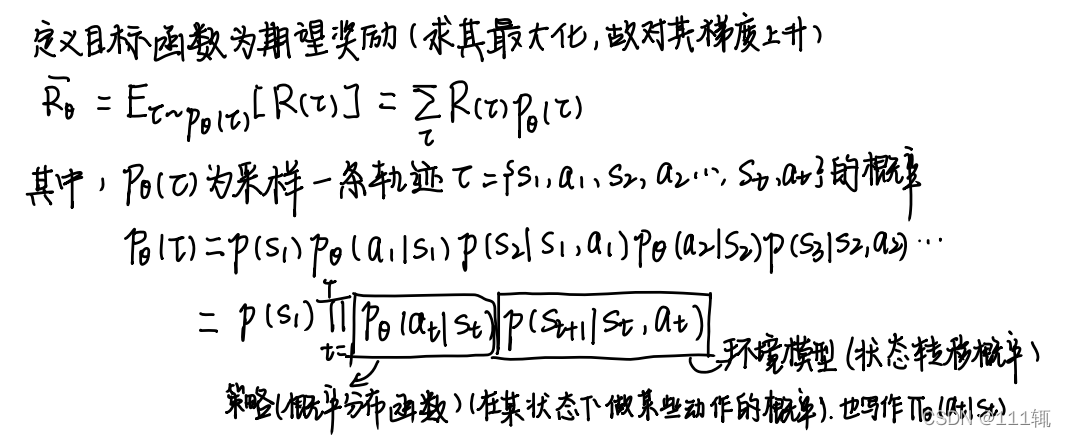 定义目标函数为期望奖励(求其最大化,故对其梯度上升)
R̄θ = Eτ~pθ(τ)[R(τ)] = Στ R(τ)pθ(τ)
其中, pθ(τ)为采样一条轨迹 τ={s1,a1,s2,a2…,st,at}的概率
pθ(τ)=p(s1)pθ(a1|s1)p(s2|s1,a1)pθ(a2|s2)p(s3|s2,a2)…
= p(s1)∏t=1T pθ(at|st) p(st+1|st,at)
环境模型(状态转移概率)
策略(概率分布函数)(在某状态下做某些动作的概率).也写作πθ(at|st)
CSDN @111辄